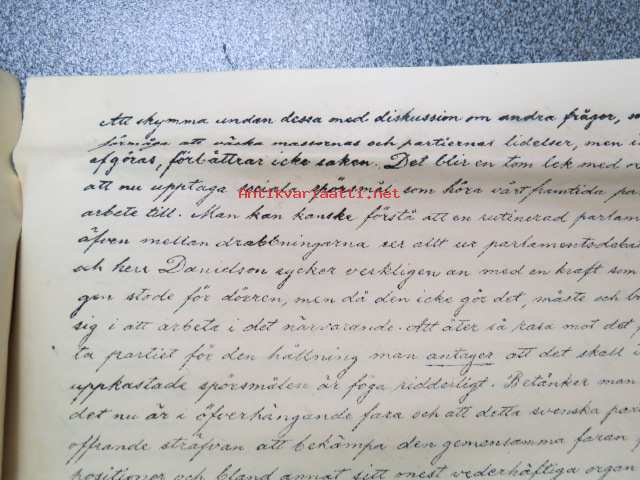 Att skymma undan dessa med diskussion om andra frågor, so
förmåga att väcka massornas och partiernas lidelser, men i
afgöras, förbättrar icke saken. Det blir en tom lek med or
att nu upptaga sociala spörsmål som höra vårt framtida par
Antikvariaatti.net
arbete till. Man kan kanske förstå att en rutinerad parlam
äfven mellan drabbningarna ser allt ur parlamentsdeba
och herr Danielson rycker verkligen an med en kraft som
gen stode för dörren, men då den icke gör det, måste och b
sig i att arbeta i det närvarande. Att åter så rasa mot det
ta partiet för den hållning man antager att det skall
uppkastade spörsmålen är föga ridderligt. Betänker man
det nu är i öfverhängande fara och att detta svenska par
offrande sträfvan att bekämpa den gemensamma faran f
positioner och bland annat sitt mest vederhäftiga organ